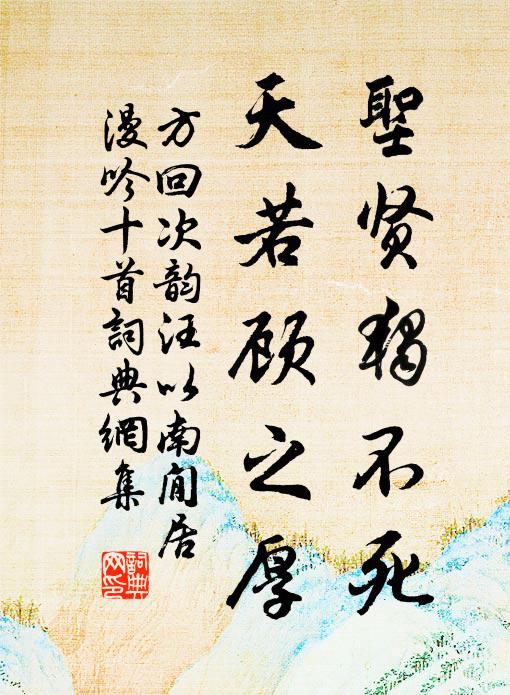 聖贤獨不死
天若顾之厚
方回次韵汪以南闲居
漫吟十首詞典網集
詞典网印